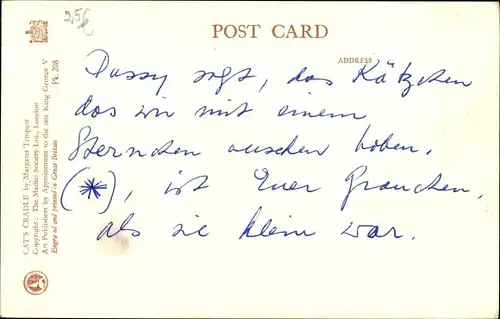 256
POST CARD
ADDRESS
Pussy sagt, das Kätzchen
das wir mit einem
Sternchen versehen haben,
(*), ist Euer Grauchen,
als sie klein war.
CAT'S CRADLE by Margaret Tempest
Copyright: The Medici Society Ltd., London
Art Publishers by Appointment to the late King George V
Engraved and printed in Great Britain
Pk. 208